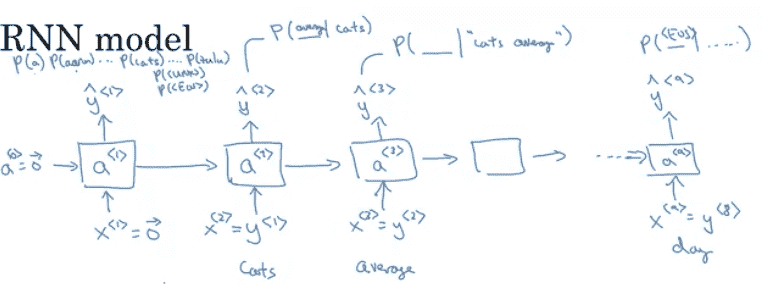 RNN model
P(a) P(aaron) ... P(cats) ... P(zulu)
P(<UNK>)
P(<EOS>)
P(average | cats)
P(__ | "cats average")
P(<EOS> | .....)
ŷ<1> ŷ<2> ŷ<3> ŷ<9>
a<0>=0⃗ a<1> a<2> a<3> ...... a<9>
x<1>=0⃗ x<2>=y<1> x<3>=y<2> x<9>=y<8>
Cats average day